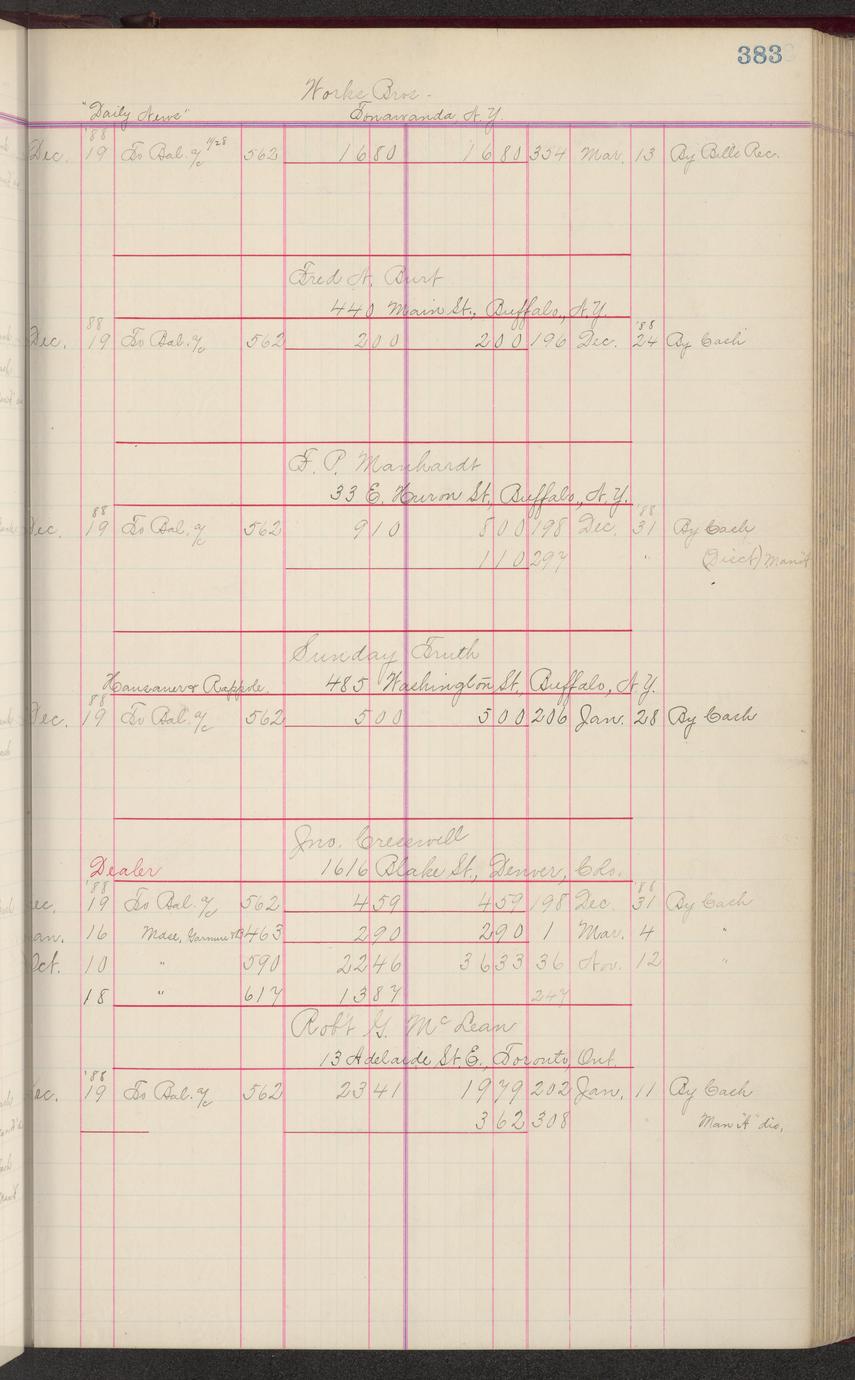 383
Works Bros.
"Daily News" Tonawanda, N.Y.
'88
Dec. 19 To Bal. a/c 11/28 562 1680 1680 354 Mar. 13 By Bills Rec.
Fred N. Burt
440 Main St., Buffalo, N.Y.
88 '88
Dec. 19 To Bal. a/c 562 200 200 196 Dec. 24 By Cash
F. P. Manhardt
33 E. Huron St., Buffalo, N.Y.
88 '88
Dec. 19 To Bal. a/c 562 910 800 198 Dec. 31 By Cash
110 297 " (Disct) Man't
Sunday Truth
Hausauer & Rappole. 485 Washington St., Buffalo, N.Y.
88
Dec. 19 To Bal. a/c 562 500 500 206 Jan. 28 By Cash
Jno. Cresswell
Dealer 1616 Blake St., Denver, Colo.
'88 '88
ec. 19 To Bal. a/c 562 459 459 198 Dec. 31 By Cash
an. 16 Mdse, 463 290 290 1 Mar. 4 "
Oct. 10 " 590 2246 3633 36 Nov. 12 "
18 " 617 1387 247
Rob't G. McLean
13 Adelaide St. E., Toronto, Ont.
'88
ec. 19 To Bal. a/c 562 2341 1979 202 Jan. 11 By Cash
362 308 Man't dis,